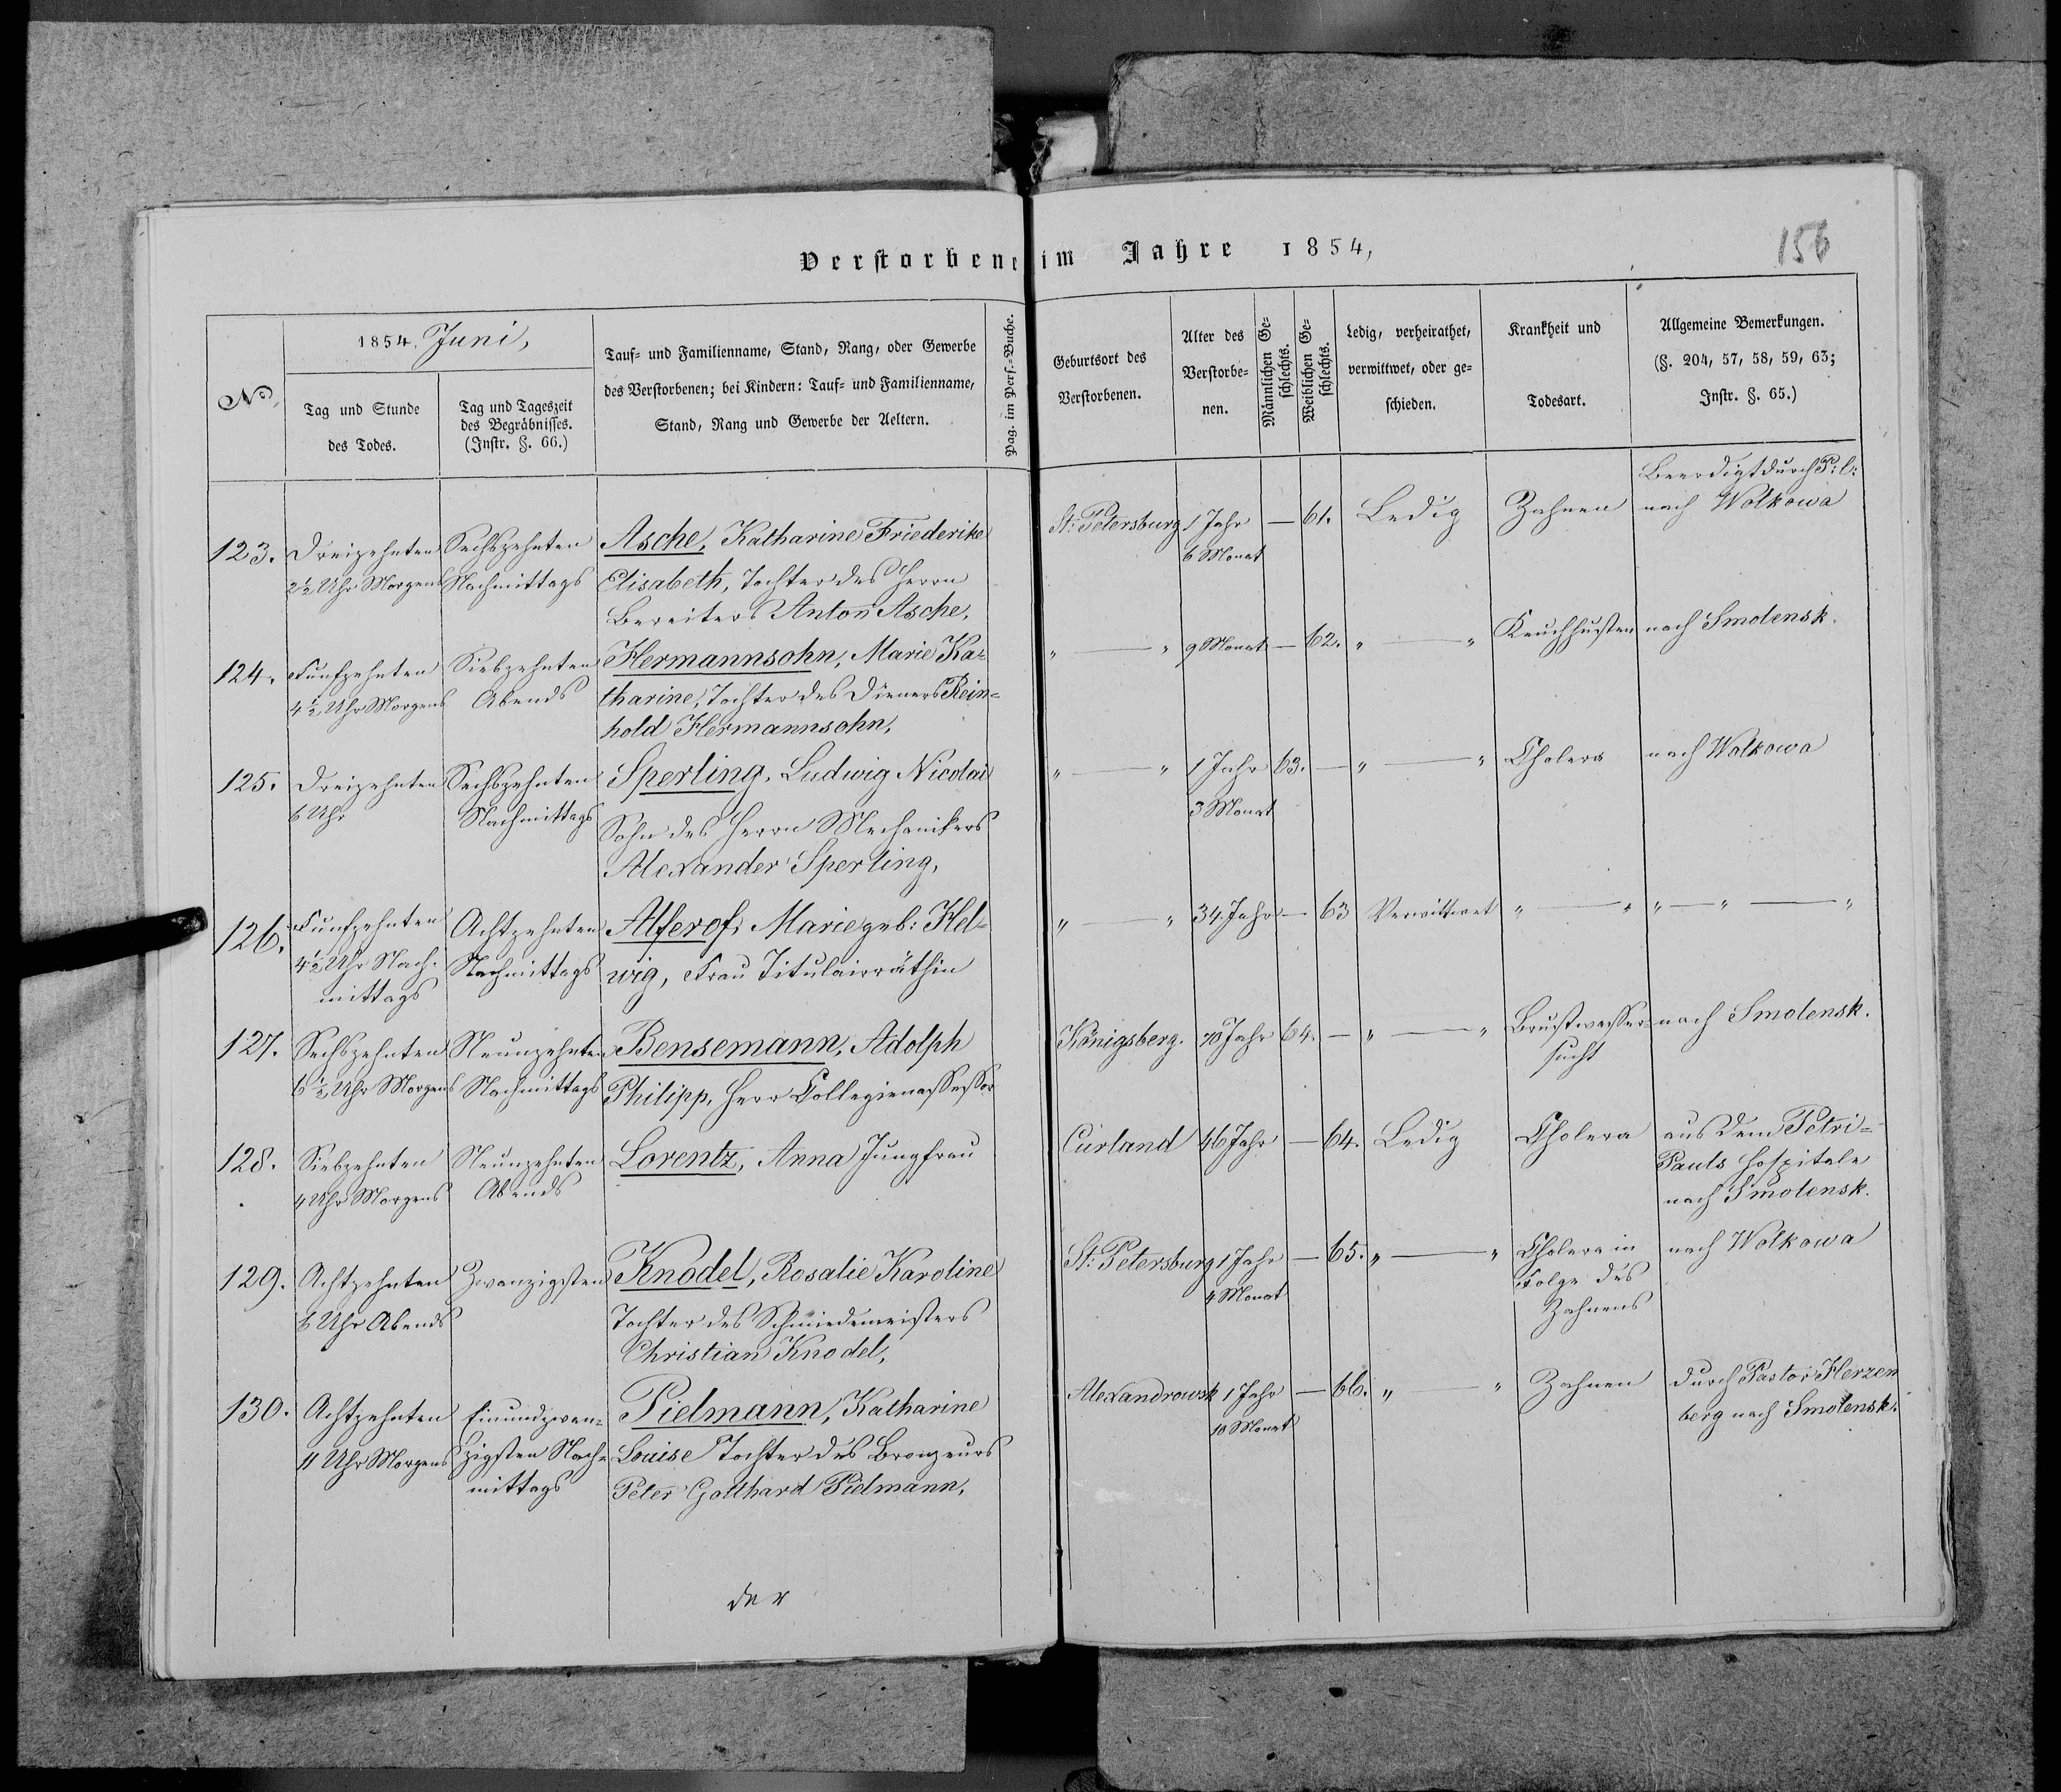 Verstorbene im Jahre 1854,
156
No
1854. Juni,
Tag und Stunde
des Todes.
Tag und Tageszeit
des Begräbnisses.
(Instr. §. 66.)
Tauf- und Familienname, Stand, Rang, oder Gewerbe
des Verstorbenen; bei Kindern: Tauf- und Familienname,
Stand, Rang und Gewerbe der Aeltern.
Pag. im Pers.-Buche.
Geburtsort des
Verstorbenen.
Alter des
Verstorbe-
nen.
Männlichen Ge-
schlechts.
Weiblichen Ge-
schlechts.
Ledig, verheirathet,
verwittwet, oder ge-
schieden.
Krankheit und
Todesart.
Allgemeine Bemerkungen.
(§. 204, 57, 58, 59, 63;
Instr. §. 65.)
123.
Dreizehnten
2½ Uhr Morgens
Sechszehnten
Nachmittags
Asche, Katharine Friederike
Elisabeth, Tochter des Herrn
Bereiters Anton Asche,
St: Petersburg
1 Jahr
6 Monat
— 61.
Ledig
Zahnen
Beerdigt durch P: l:
nach Wolkowa
124.
Funfzehnten
4½ Uhr Morgens
Siebzehnten
Abends
Hermannsohn, Marie Ka-
tharine, Tochter des Dieners Rein-
hold Hermannsohn,
„ — „
9 Monat
— 62.
„ — „
Keuchhusten
nach Smolensk.
125.
Dreizehnten
6 Uhr
Sechszehnten
Nachmittags
Sperling, Ludwig Nicolai
Sohn des Herrn Mechanikers
Alexander Sperling,
„ — „
1 Jahr
3 Monat
63. —
„ — „
Cholera
nach Wolkowa
126.
Funfzehnten
4½ Uhr Nach-
mittags
Achtzehnten
Nachmittags
Alferof, Marie geb: Hel-
wig, Frau Titulairräthin
„ — „
34 Jahr
— 63
Verwittwet
„ — „
„ — „ — „
127.
Sechszehnten
6½ Uhr Morgens
Neunzehnten
Nachmittags
Bensemann, Adolph
Philipp, Herr Collegienassessor
Königsberg.
70 Jahr
64. —
„ — „
Brustwasser-
sucht
nach Smolensk.
128.
Siebzehnten
4 Uhr Morgens
Neunzehnten
Abends
Lorentz, Anna Jungfrau
Curland
46 Jahr
— 64.
Ledig
Cholera
aus dem Petri-
Pauls Hospitale
nach Smolensk.
129.
Achtzehnten
6 Uhr Abends
Zwanzigsten
Knodel, Rosalie Karoline
Tochter des Schmiedemeisters
Christian Knodel,
St: Petersburg
1 Jahr
4 Monat
— 65.
„ — „
Cholera in
Folge des
Zahnens
nach Wolkowa
130.
Achtzehnten
11 Uhr Morgens
Einundzwan-
zigsten Nach-
mittags
Pielmann, Katharine
Louise Tochter des Bronzeurs
Peter Gotthard Pielmann,
Alexandrowsk
1 Jahr
10 Monat
— 66.
„ — „
Zahnen
durch Pastor Herzen
berg nach Smolensk.
der